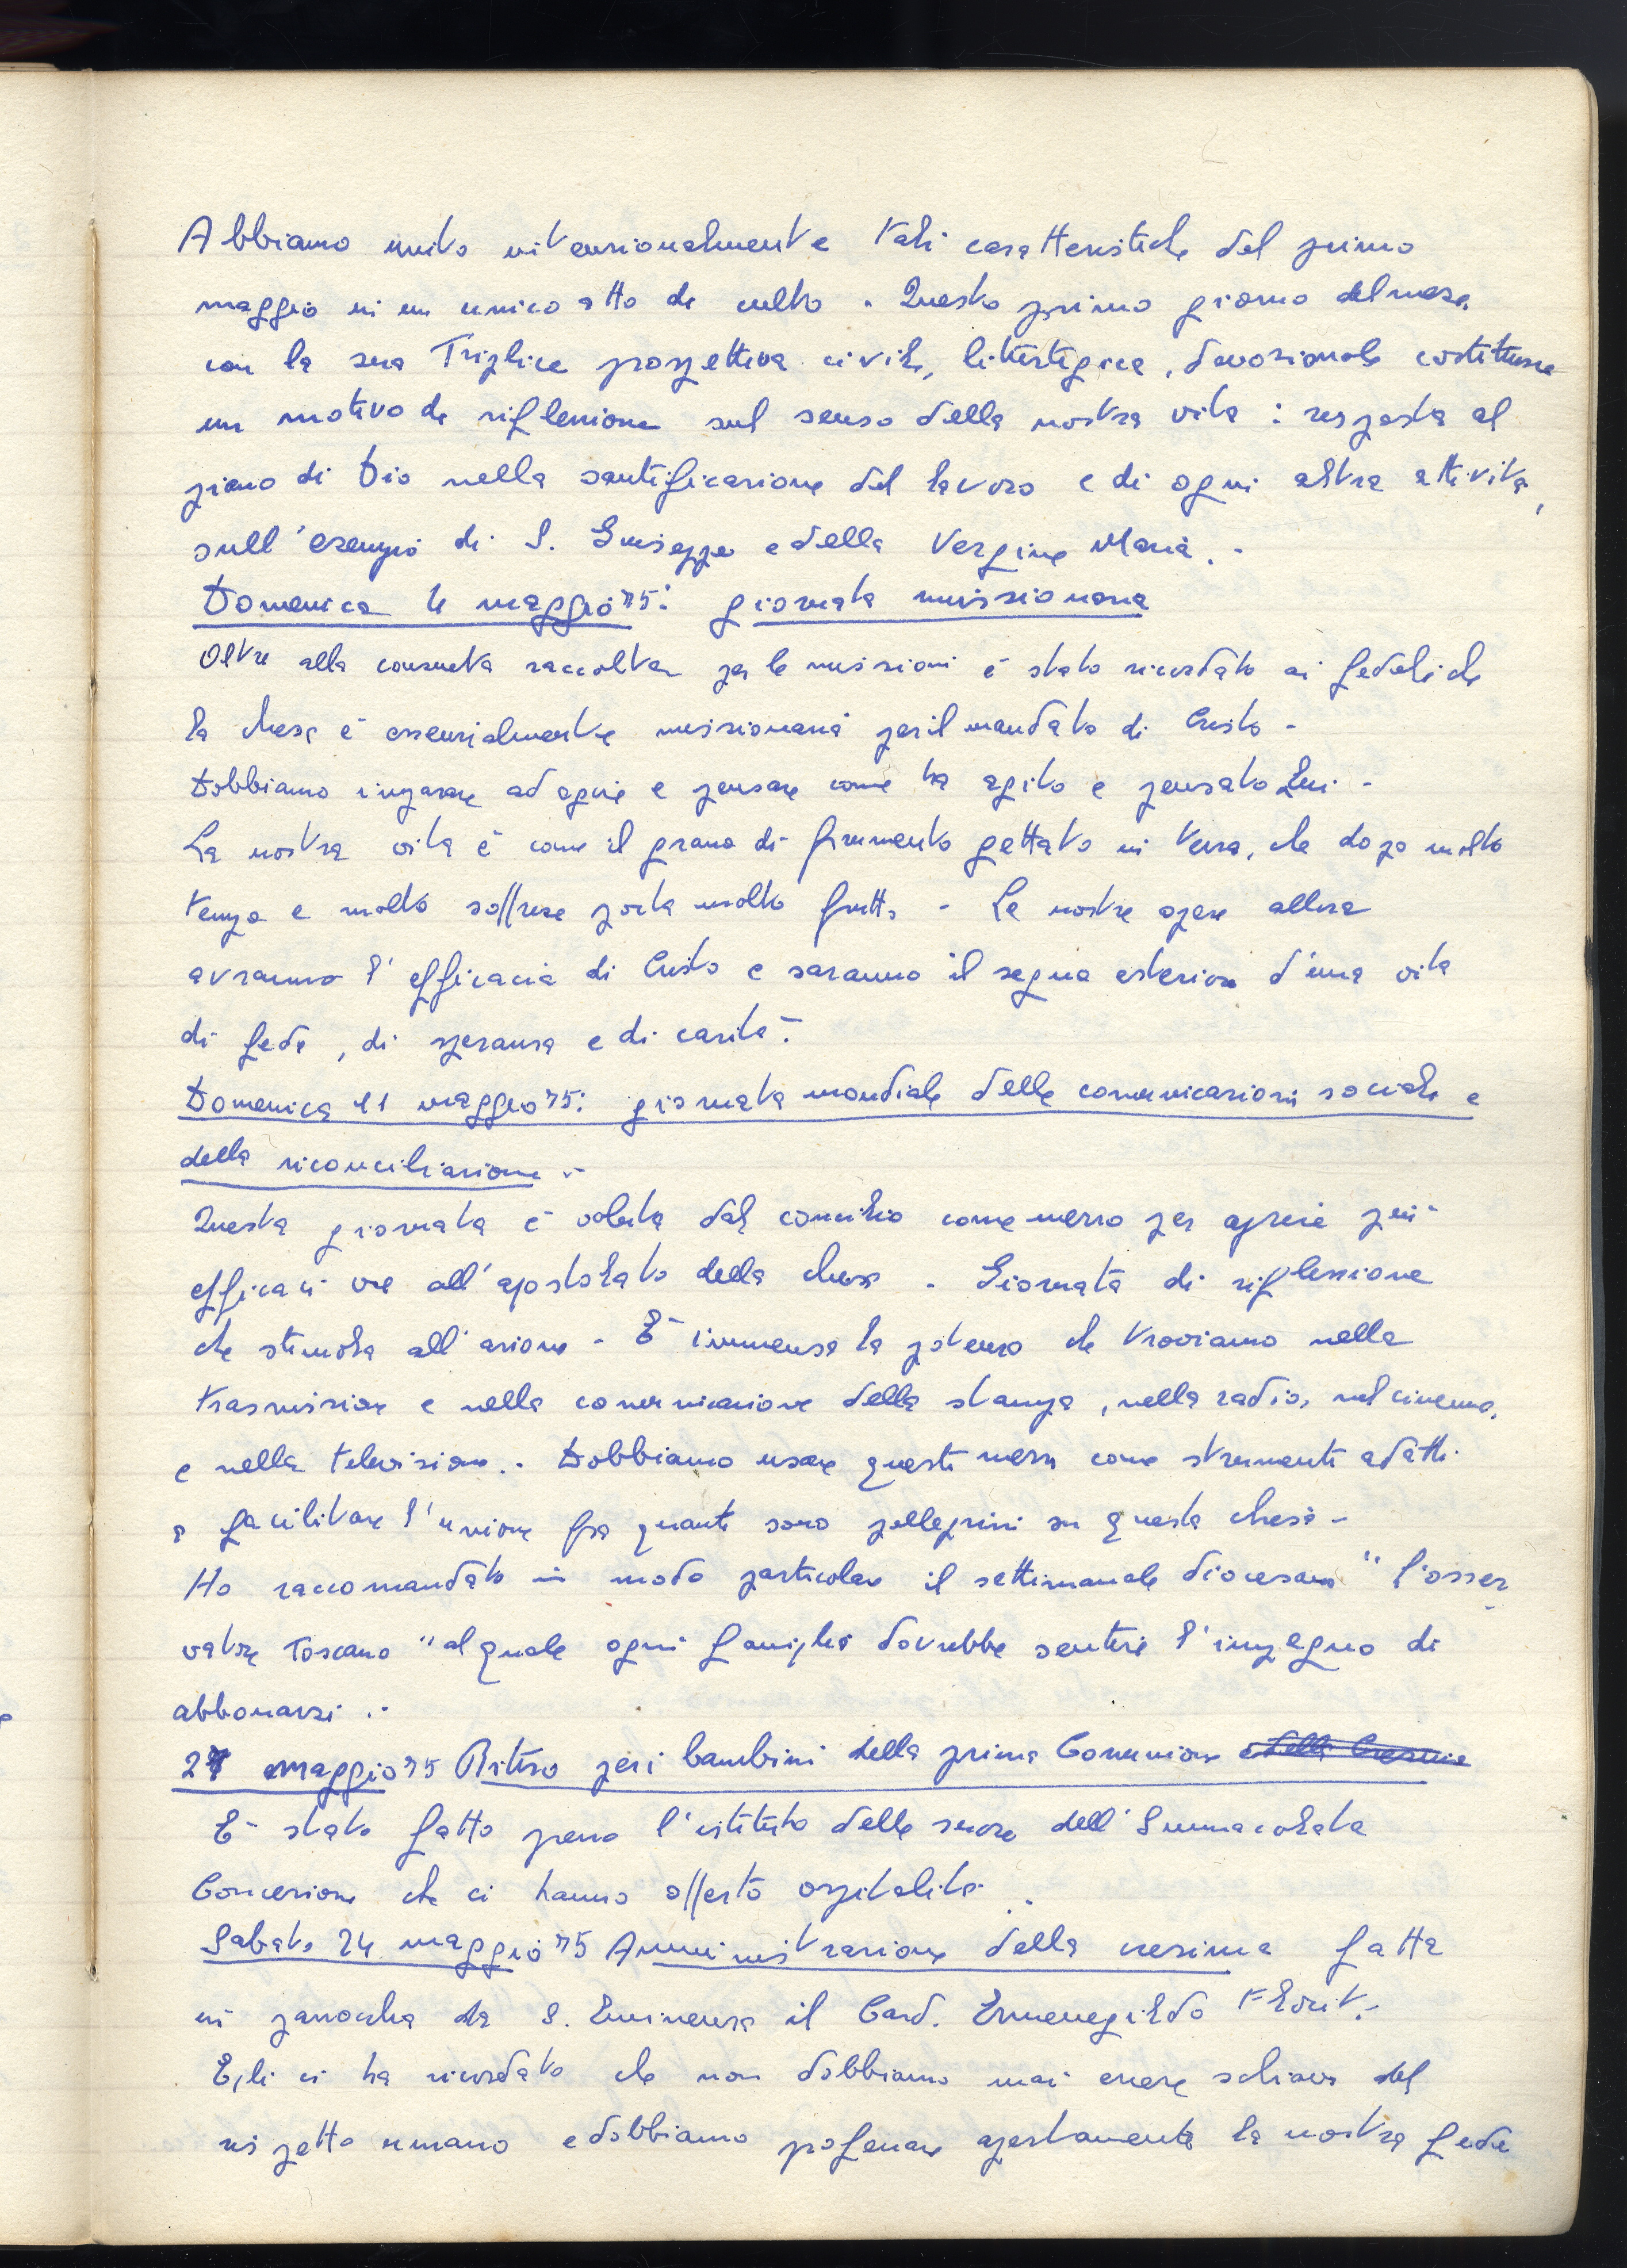 Abbiamo unito intenzionalmente tali caratteristiche del primo
maggio in un unico atto di culto. Questo primo giorno del mese,
con la sua Triplice prospettiva civile, liturgica, devozionale costituisce
un motivo di riflessione sul senso della nostra vita: risposta al
piano di Dio nella santificazione del lavoro e di ogni altra attività,
sull'esempio di S. Giuseppe e della Vergine Maria.-
Domenica 4 maggio 75: giornata missionaria
Oltre alla consueta raccolta per le missioni è stato ricordato ai fedeli che
la chiesa è essenzialmente missionaria per il mandato di Cristo -
Dobbiamo imparare ad agire e pensare come ha agito e pensato Lui -
La nostra vita è come il grano di frumento gettato in terra, che dopo molto
tempo e molto soffrire porta molto frutto - Le nostre opere allora
avranno l'efficacia di Cristo e saranno il segno esteriore d'una vita
di fede, di speranza e di carità.
Domenica 11 maggio 75: giornata mondiale delle comunicazioni sociali e
della riconciliazione.-
Questa giornata è voluta dal concilio come mezzo per aprire più
efficaci vie all'apostolato della chiesa - Giornata di riflessione
che stimola all'azione - È immensa la potenza che troviamo nella
trasmissione e nella comunicazione della stampa, nella radio, nel cinema,
e nella televisione.- Dobbiamo usare questi mezzi come strumenti adatti
a facilitare l'unione fra quanti sono pellegrini in questa chiesa -
Ho raccomandato in modo particolare il settimanale diocesano "l'osser
vatore Toscano" al quale ogni famiglia dovrebbe sentire l'impegno di
abbonarsi.-
27 maggio 75 Ritiro per i bambini della prima Comunione e della Cresima
È stato fatto presso l'istituto delle suore dell'Immacolata
Concezione che ci hanno offerto ospitalità.
Sabato 24 maggio 75 Amministrazione della cresima fatta
in parrocchia da S. Eminenza il Card. Ermenegildo Florit.-
Egli ci ha ricordato che non dobbiamo mai essere schiavi del
rispetto umano e dobbiamo professare apertamente la nostra fede